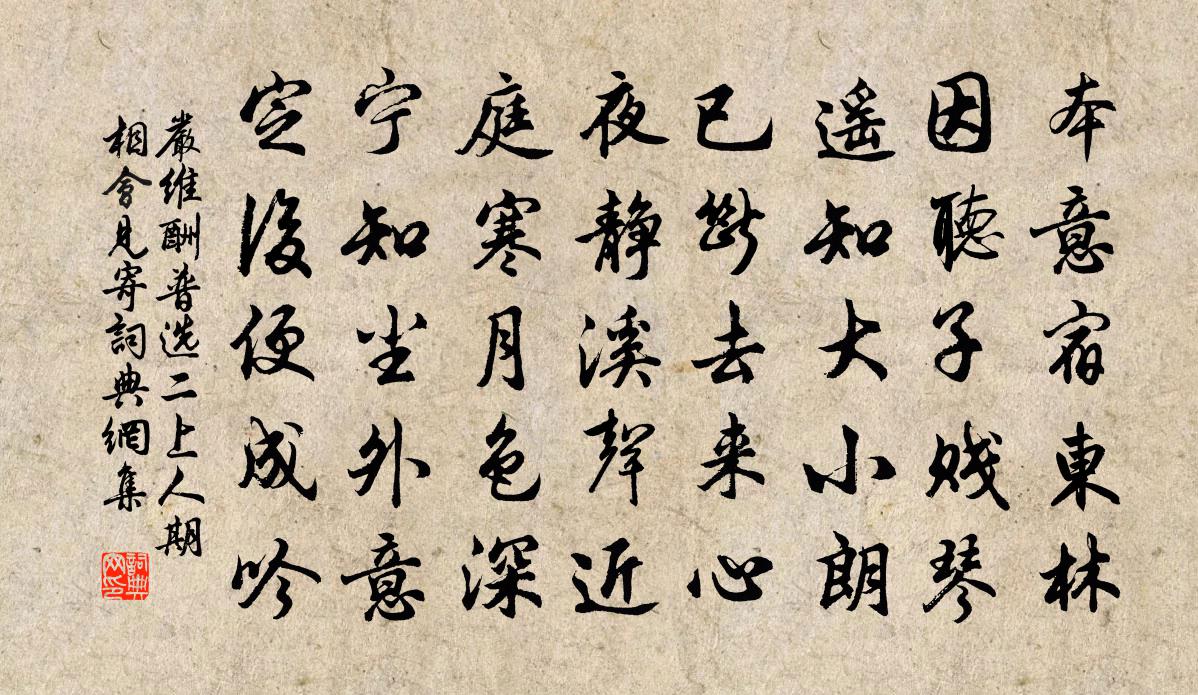 本意宿東林
因聽子賤琴
遥知大小朗
已斷去来心
夜静溪聲近
庭寒月色深
宁知尘外意
定後便成吟
嚴維酬普选二上人期
相會見寄詞典網集
詞典
网印